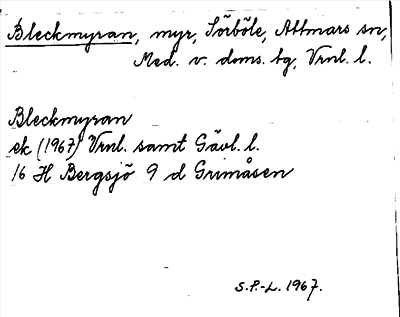 Bleckmyran, myr, Sörböle, Attmars sn,
Med. v. doms. tg, Vrnl. l.
Bleckmyran
ek (1967) Vrnl. samt Gävl. l.
16 H Bergsjö 9 d Grimåsen
S.P.-L. 1967.